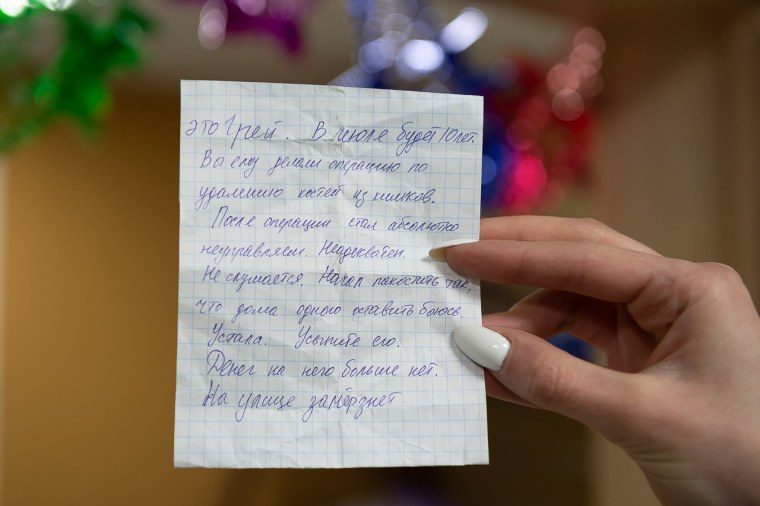 это Грей. В июле будет 10 лет.
Вы ему делали операцию по
удалению костей из кишков.
После операции стал абсолютно
неуправляем. Неадекватен.
Не слушается. Начал пакостить так,
что дома одного оставить боюсь.
Устала. Усыпите его.
Денег на него больше нет.
На улице замёрзнет